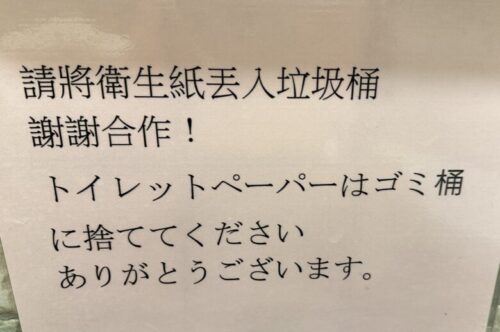 請將衛生紙丟入垃圾桶
謝謝合作！
トイレットペーパーはゴミ桶
に捨ててください
ありがとうございます。